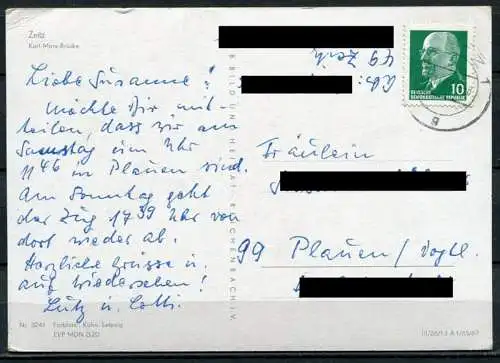 Zeitz
Karl-Marx-Brücke
Liebe Susanne!
Möchte Dir mit-
teilen, dass wir am
Samstag um Uhr
11 46 in Plauen sind.
Am Sonntag geht
der Zug 17 39 Uhr von
dort wieder ab.
Herzliche Grüsse u.
auf Wiedersehen!
Lutz u. Lotti.
Nr. 3241 Farbfoto: Kühn, Leipzig
EVP MDN 0,20
BILD UND HEIMAT REICHENBACH I. V.
Ab:
49 Zeitz
DEUTSCHE
DEMOKRATISCHE REPUBLIK
10
Fräulein
99 Plauen/Vogtl.
III/26/13 A 1/65/67